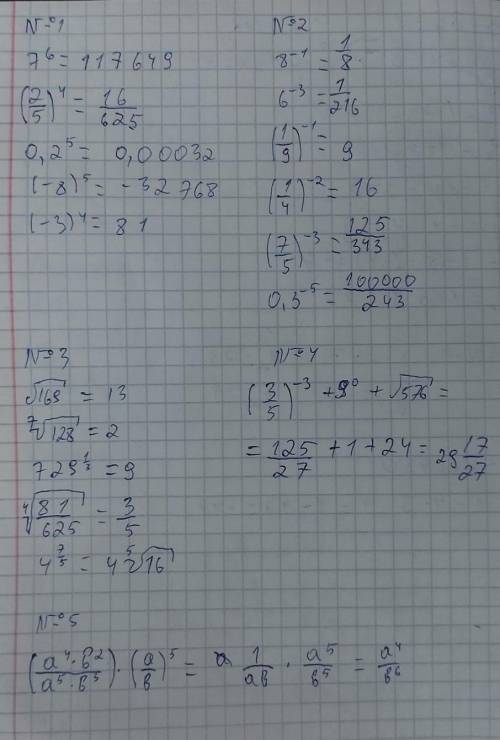 №1
7⁶ = 117649
(2/5)⁴ = 16/625
0,2⁵ = 0,00032
(-8)⁵ = -32768
(-3)⁴ = 81
№2
8⁻¹ = 1/8
6⁻³ = 1/216
(1/9)⁻¹ = 9
(1/4)⁻² = 16
(7/5)⁻³ = 125/343
0,3⁻⁵ = 100000/243
№3
√169 = 13
⁷√128 = 2
729^(1/3) = 9
⁴√(81/625) = 3/5
4^(7/5) = 4 ⁵√16
№4
(3/5)⁻³ + 9⁰ + √576 =
= 125/27 + 1 + 24 = 29 17/27
№5
(a⁴·b²/a⁵·b⁵)·(a/b)⁵ = 1/ab · a⁵/b⁵ = a⁴/b⁶